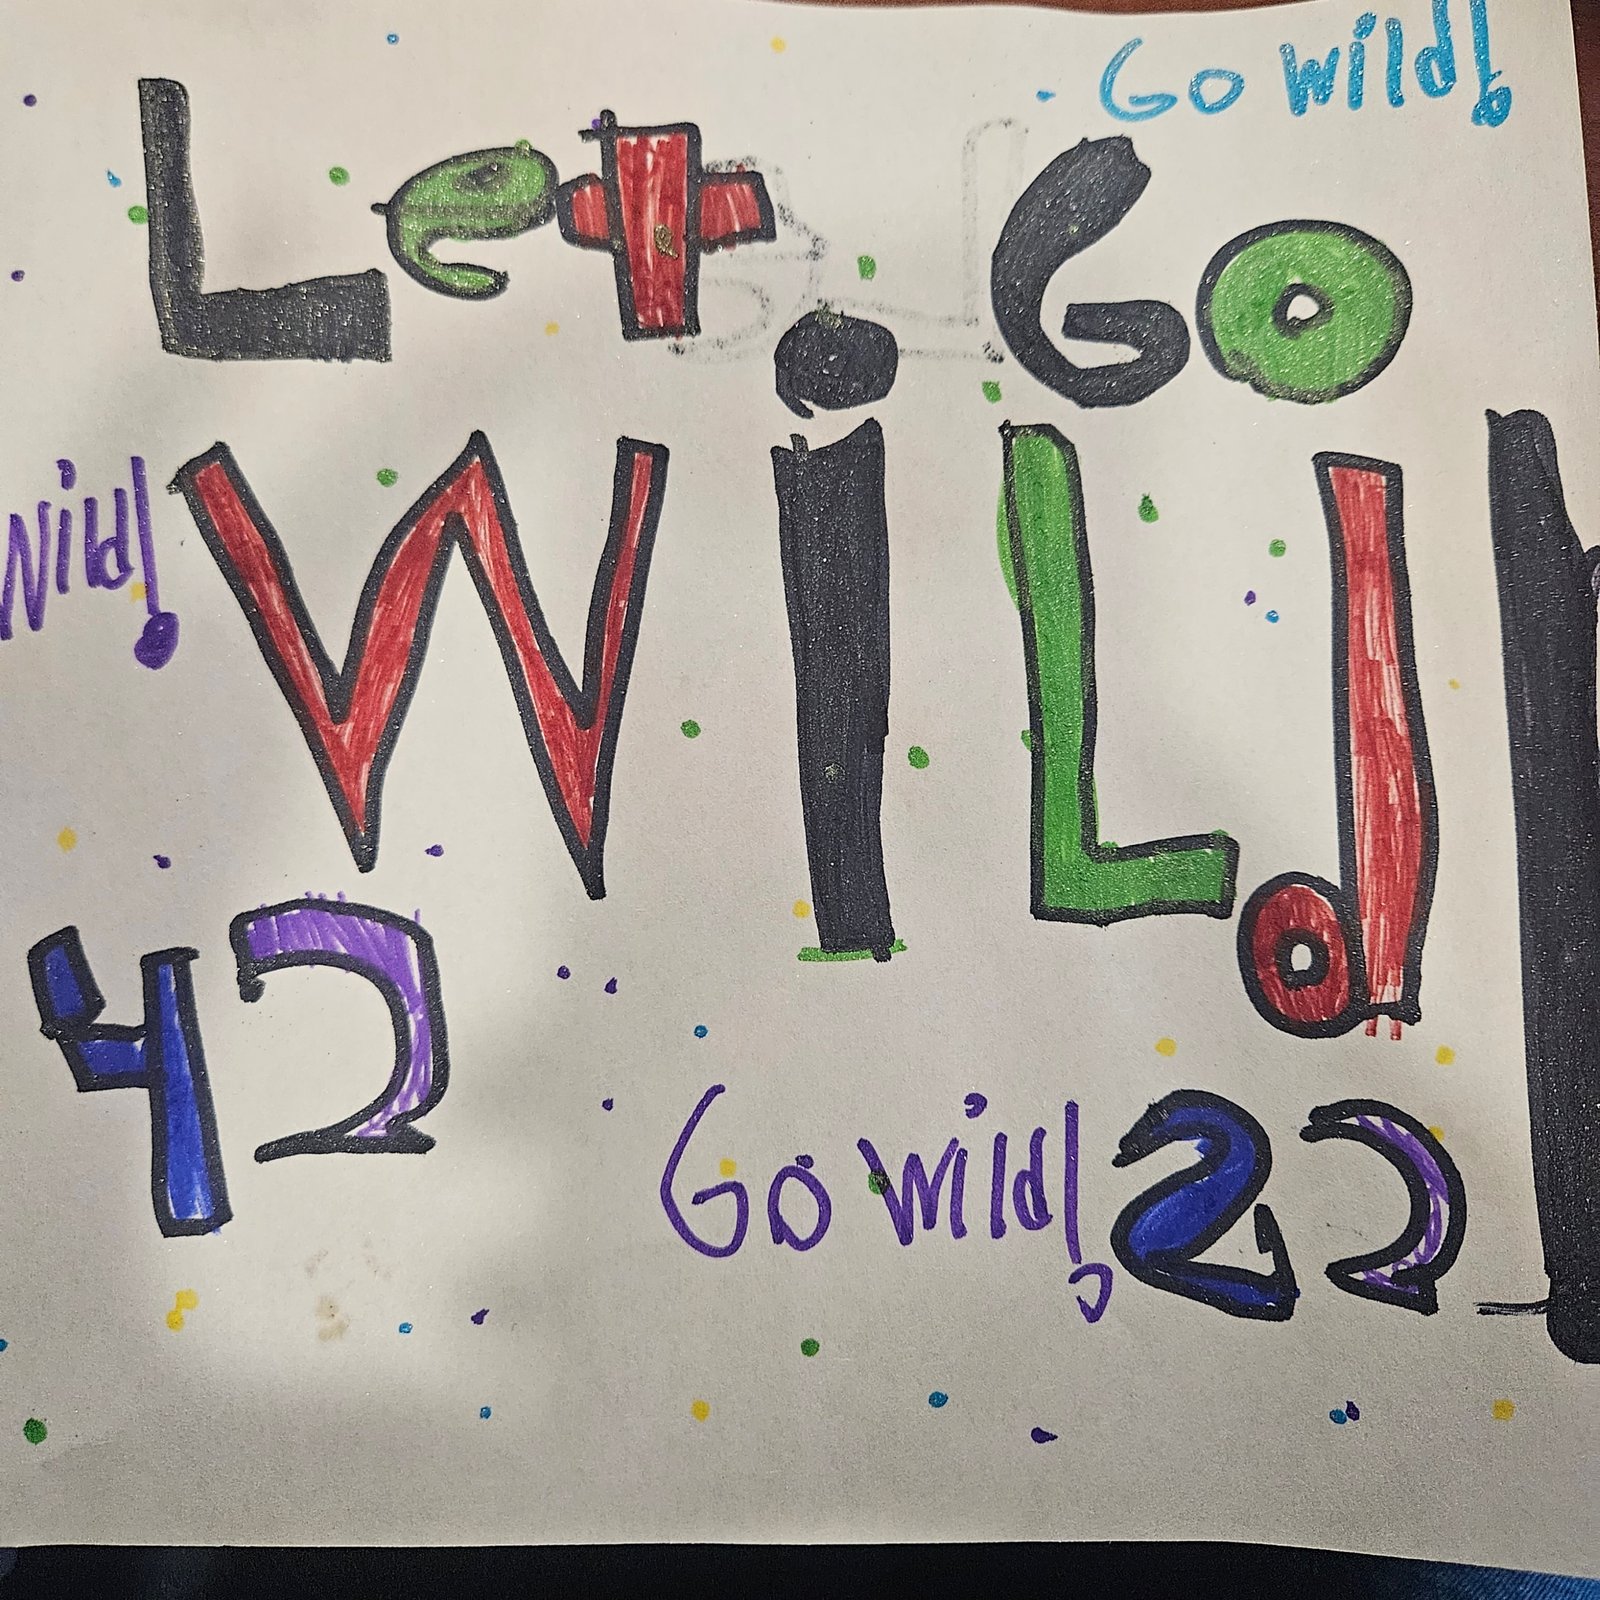 Go Wild!
Let Go
Wild!
WiLd
42
Go Wild!
22